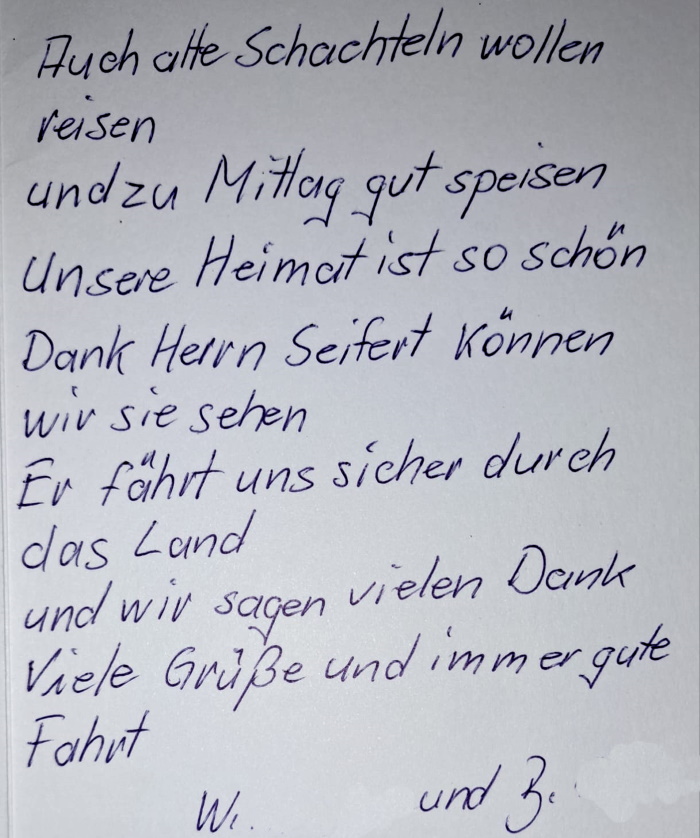 Auch alte Schachteln wollen
reisen
und zu Mittag gut speisen
Unsere Heimat ist so schön
Dank Herrn Seifert können
wir sie sehen
Er fährt uns sicher durch
das Land
und wir sagen vielen Dank
Viele Grüße und immer gute
Fahrt
W. und B.